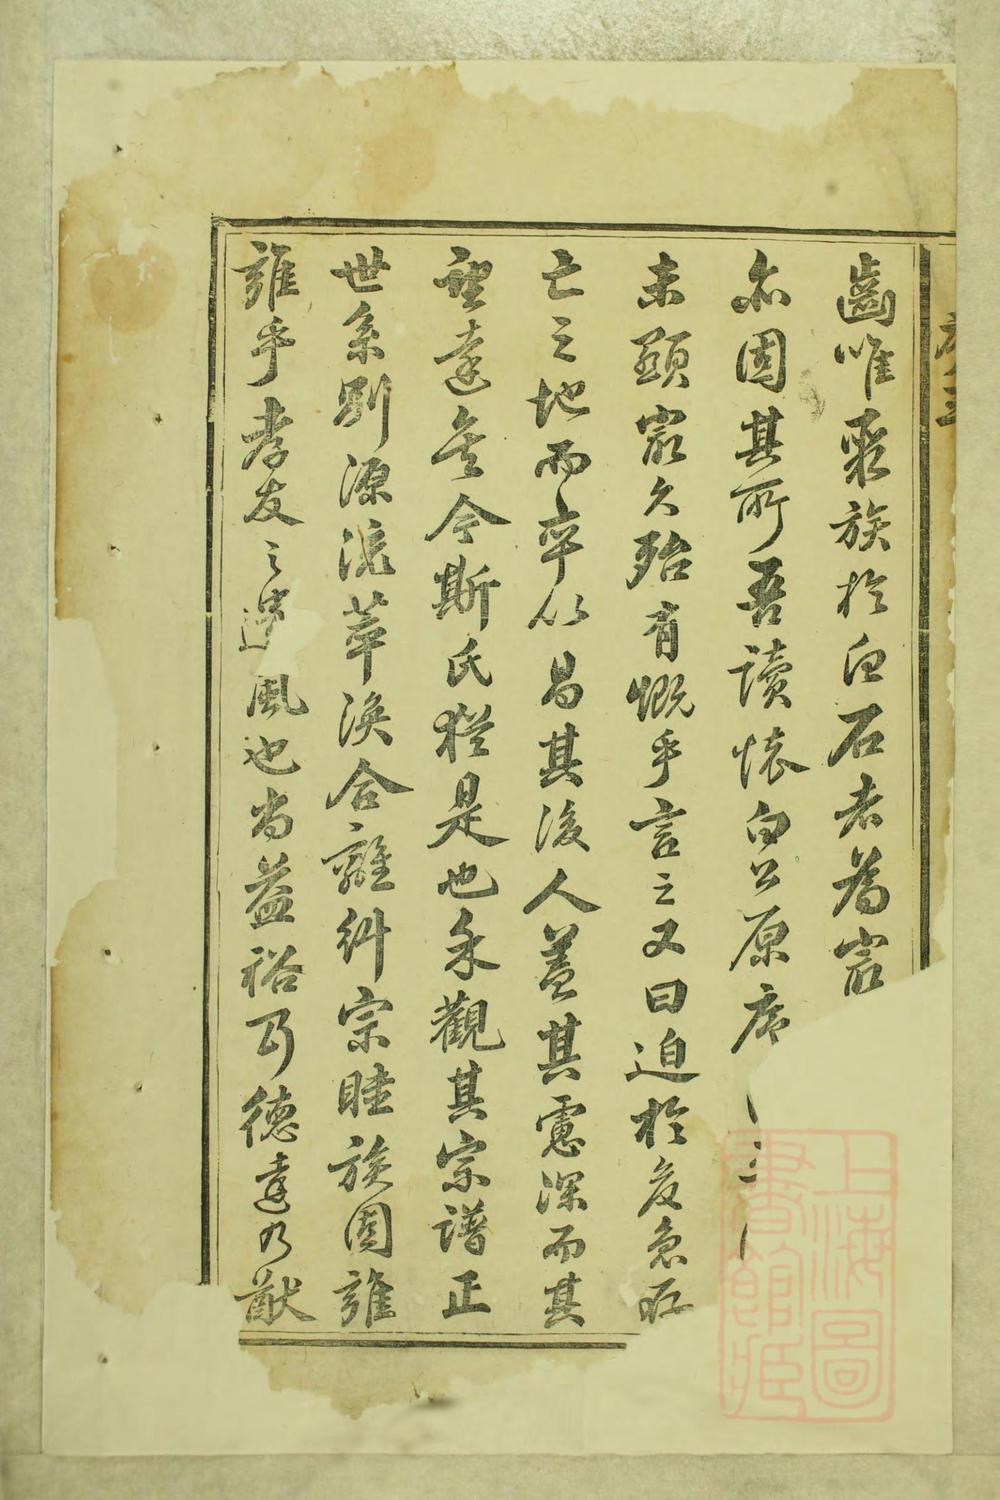 齒唯聚族於白石者為最
亦固其所吾讀懷白公原序
未顯最久殆有慨乎言之又曰迫於
亡之地而卒以昌其後人蓋其慮深而其
達矣今斯氏猶是也永觀其宗譜正
世系別源流萃渙合離糾宗睦族固雍
雍乎孝友之遺風也尚益裕乃德遠乃猷
上海圖書館藏